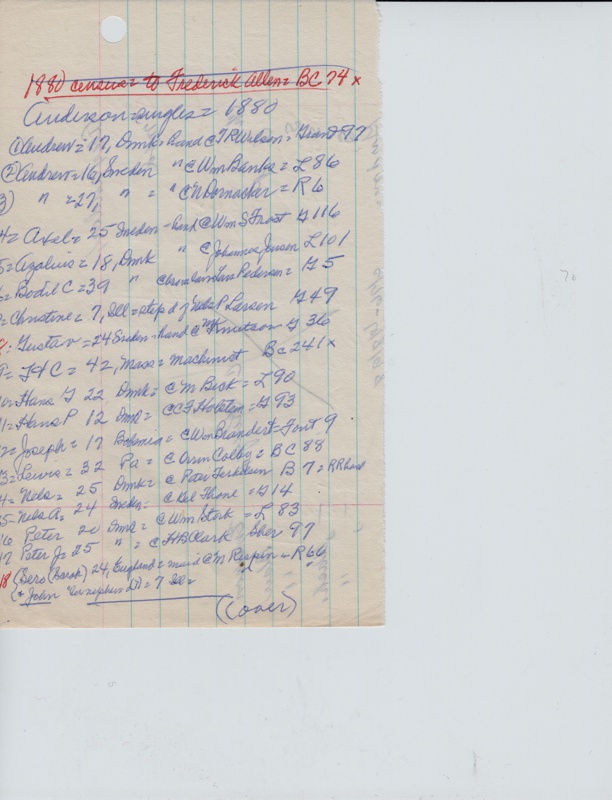 1880 census = to Frederick Allen = BC 74 x
Anderson = singles = 1880
① Andrew = 17, Dmk = hand c T R Wilson = Grant 97
② Andrew = 16, Sweden " c Wm Banks = L 86
3) " = 27, " = " c N Dornacker = R 6
4 = Axel = 25 Sweden - hand c Wm S Frost G 116
5 = Azalius = 18, Dmk " c Johannes Jensen L 101
= Bodil C = 39 " c Lars Pedersen = G 5
= Christine = 7, Ill = step d of Nels P Larsen G 49
8: Gustav = 24 Sweden = hand c Knutson G 36
9 = J H C = 42, Mass = machinist BC 241 x
10 = Hans J 22 Dmk = c M Beck = L 90
11 = Hans P 12 Dmk = c C F Holsten = G 93
12 = Joseph = 17 Bohemia = c Wm Brandert = Front 9
13 = Lewis = 32 Pa = c Orrin Colby = BC 88
14 = Nels = 25 Dmk = c Peter B 7 = RR hand
15 = Nels A = 24 Sweden = c Thone = G 14
16 Peter 20 Dmk = c Wm Stork = L 83
17 Peter J = 25 " = c H B Clark Sher 97
18 { Sero (Sarah) 24, England = maid c M Respin = R 66
& John (nephew) = 7 Ill =
(over)